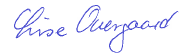 Lise Overgaard